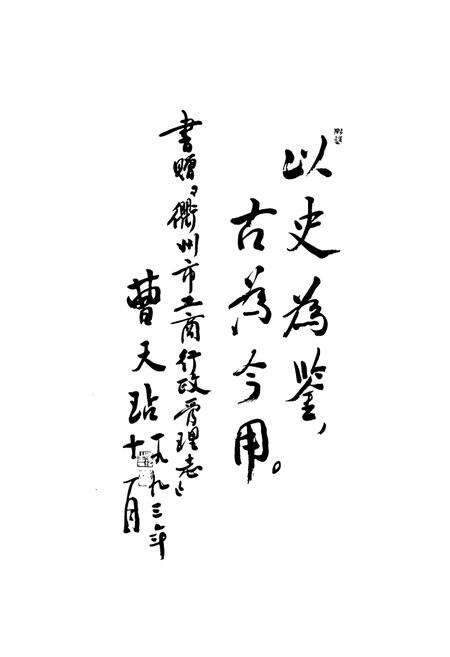 以史為鉴，
古為今用。
書贈《衢州市工商行政管理志》
曹天玷
一九九三年
十一月